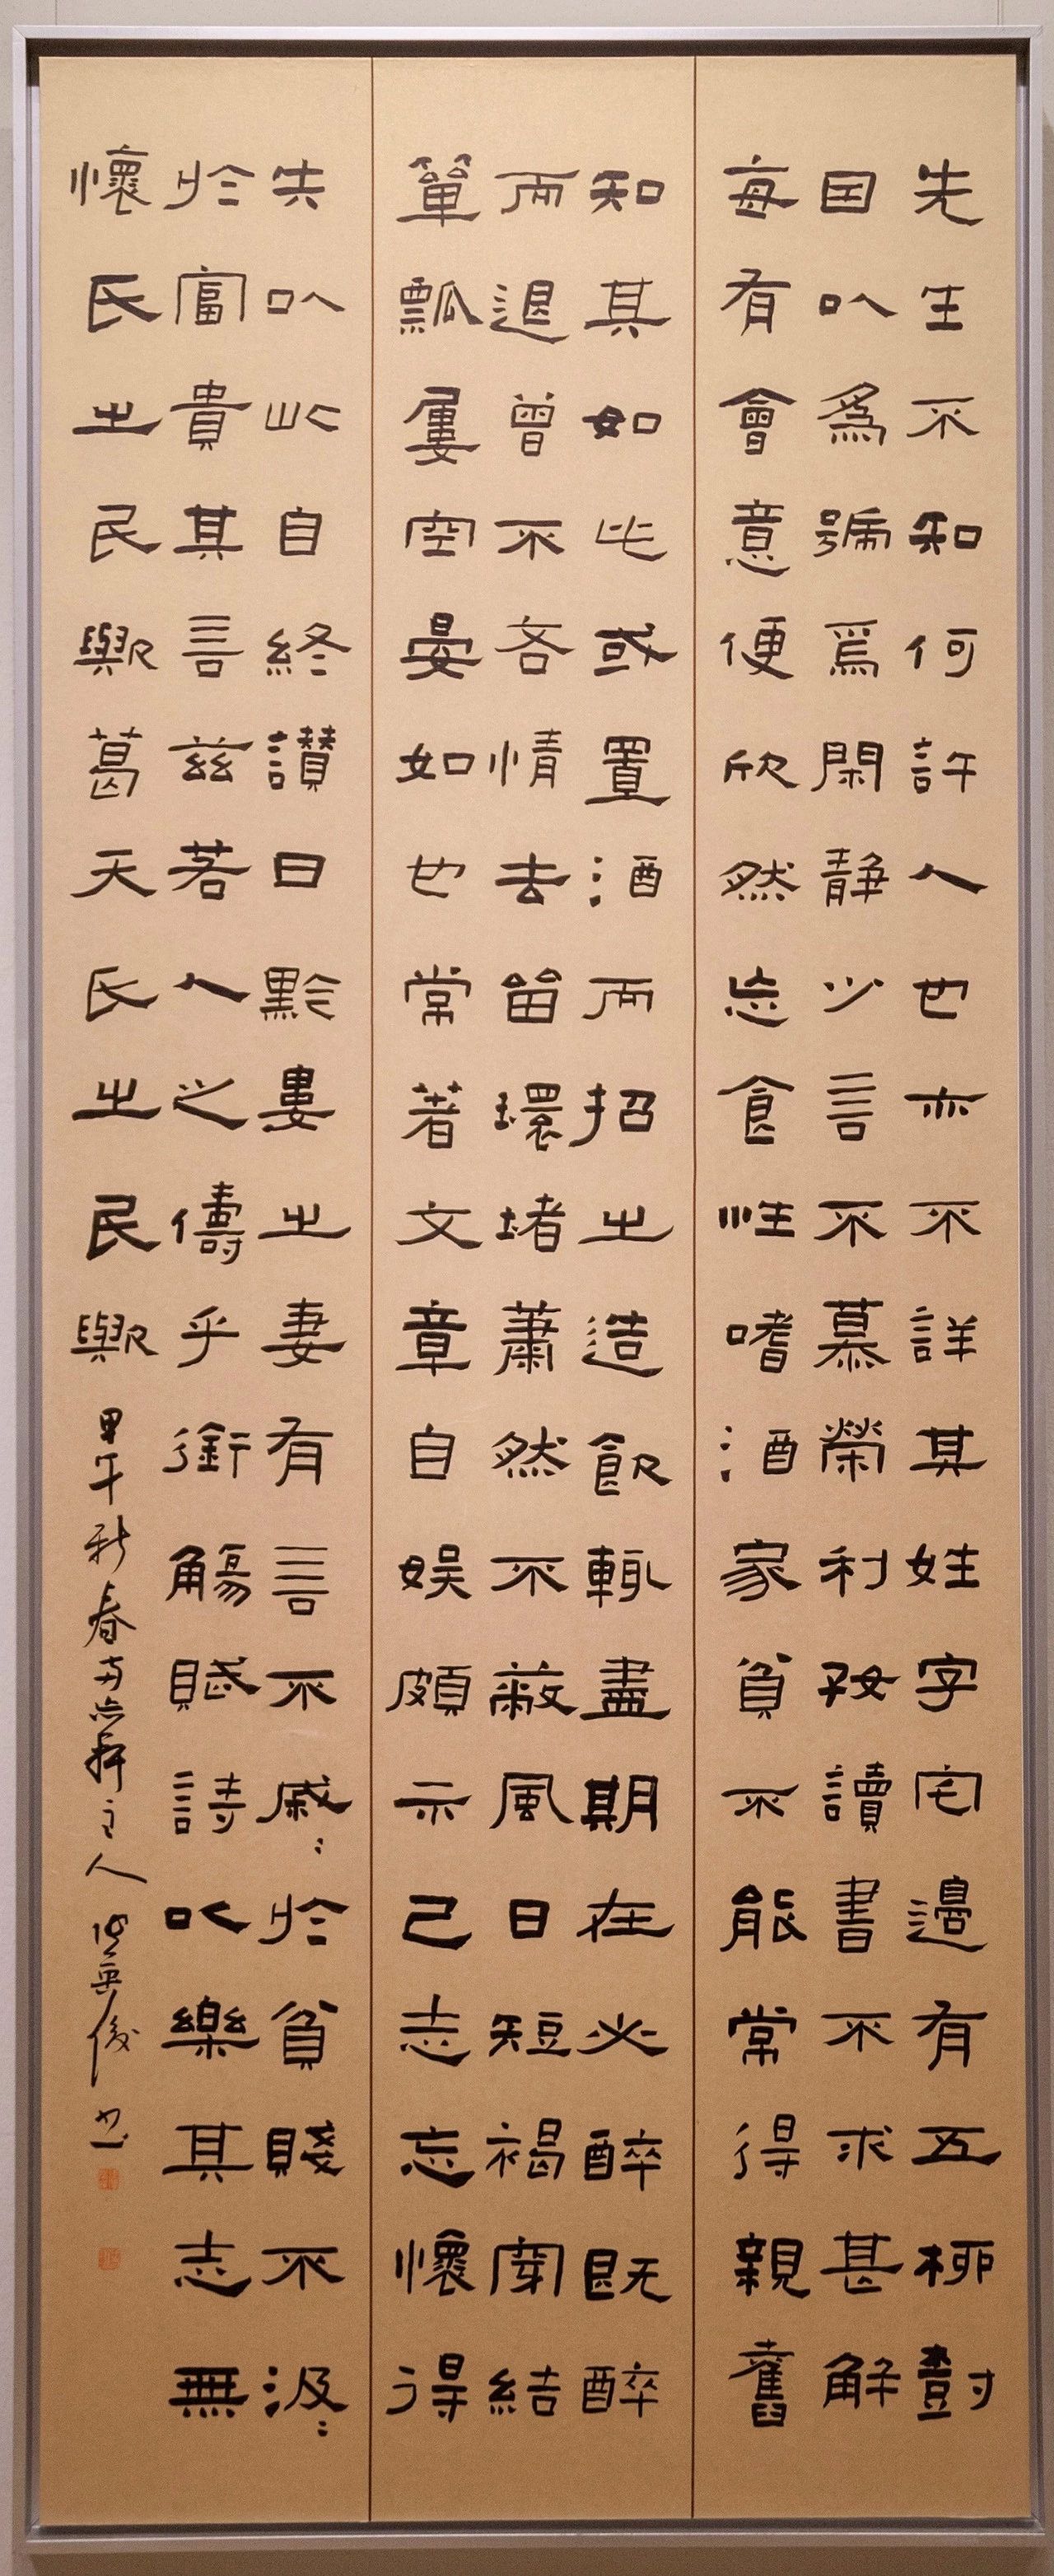 先生不知何許人也亦不詳其姓字宅邊有五柳樹
因以為號焉閑静少言不慕榮利好讀書不求甚解
每有會意便欣然忘食性嗜酒家貧不能常得親舊
知其如此或置酒而招之造飲輒盡期在必醉既醉
而退曾不吝情去留環堵蕭然不蔽風日短褐穿結
簞瓢屢空晏如也常著文章自娛頗示己志忘懷得
失以此自終讚曰黔婁之妻有言不戚〻於貧賤不汲〻
於富貴其言茲若人之儔乎銜觴賦詩以樂其志無
懷氏之民歟葛天氏之民歟 甲午新春 軒主人 英俊书